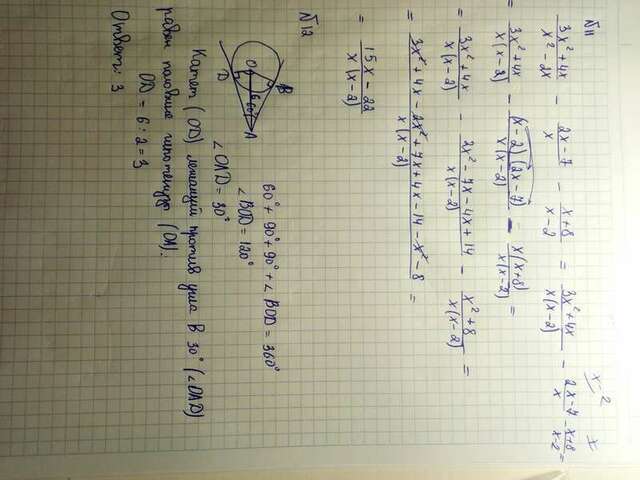 №11
3x²+4x / x²-2x - 2x-7 / x - x+8 / x-2 = 3x²+4x / x(x-2) - 2x-7 / x - x+8 / x-2 =
= 3x²+4x / x(x-2) - (x-2)(2x-7) / x(x-2) - x(x+8) / x(x-2) =
= 3x²+4x / x(x-2) - 2x²-7x-4x+14 / x(x-2) - x²+8 / x(x-2) =
= 3x²+4x-2x²+7x+4x-14-x²-8 / x(x-2) =
= 15x-22 / x(x-2)
№12
O D B A 6 60°
60°+90°+90°+∠BOD=360°
∠BOD=120°
∠OAD=30°
Катет (OD) лежащий против угла В 30° (∠OAD)
равен половине гипотенузы (OA).
OD = 6:2=3
Ответ: 3